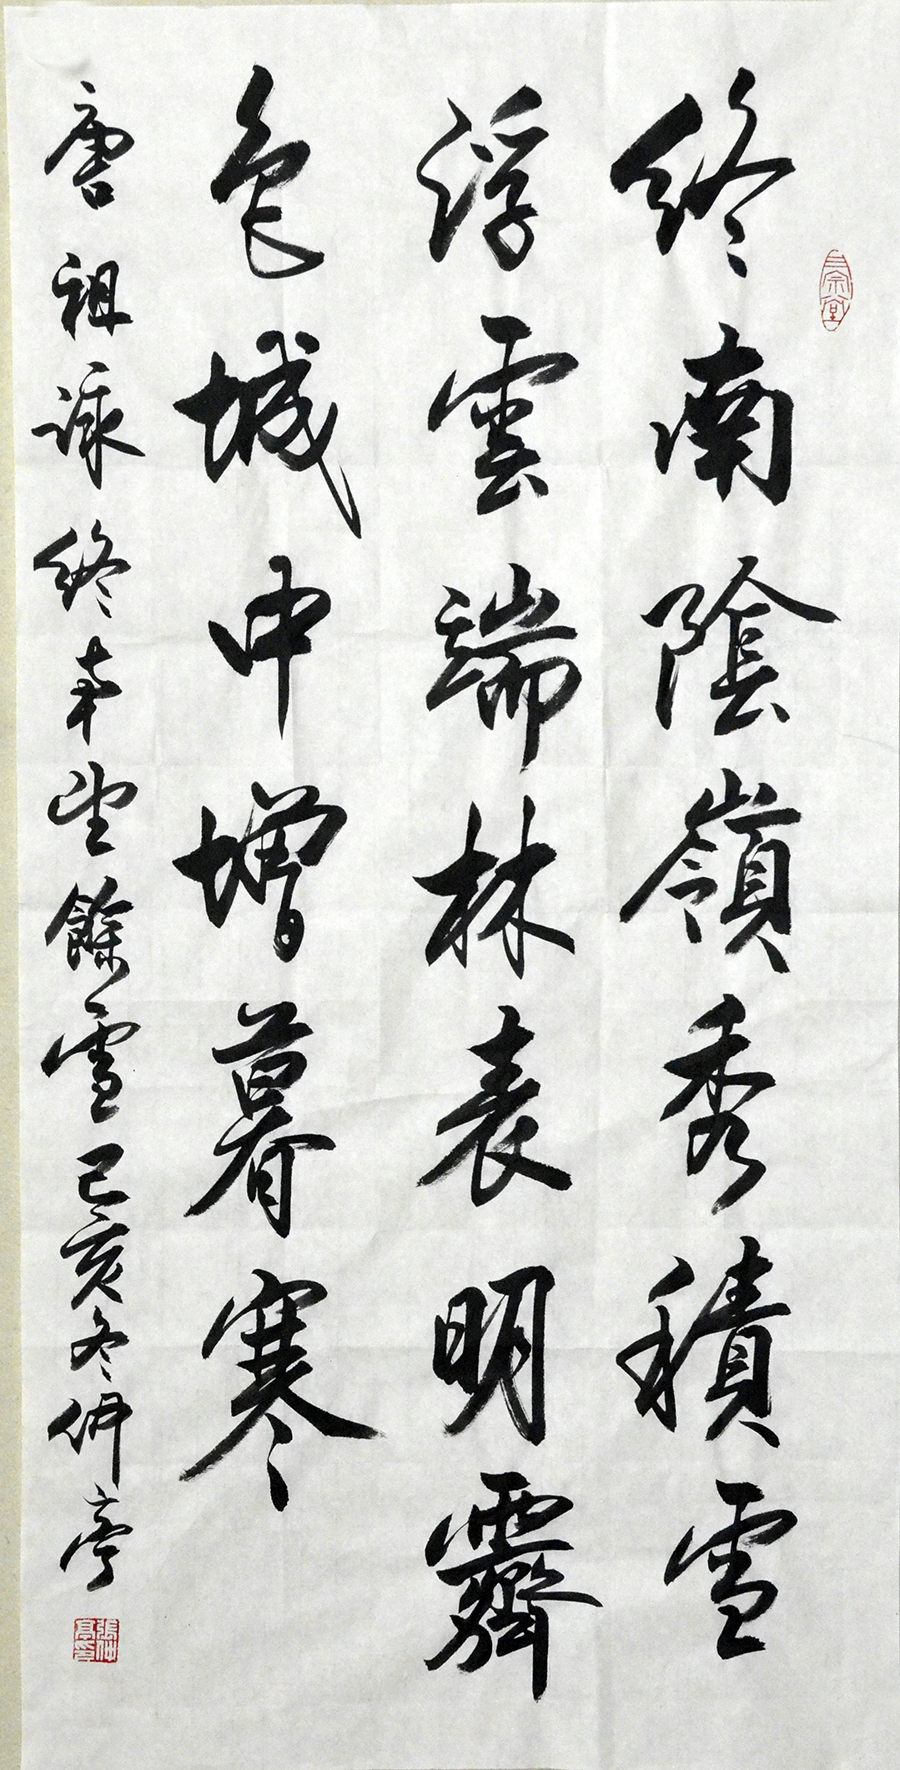 終南陰嶺秀積雪
浮雲端林表明霽
色城中增暮寒
唐祖詠終南望餘雪己亥冬仲亭